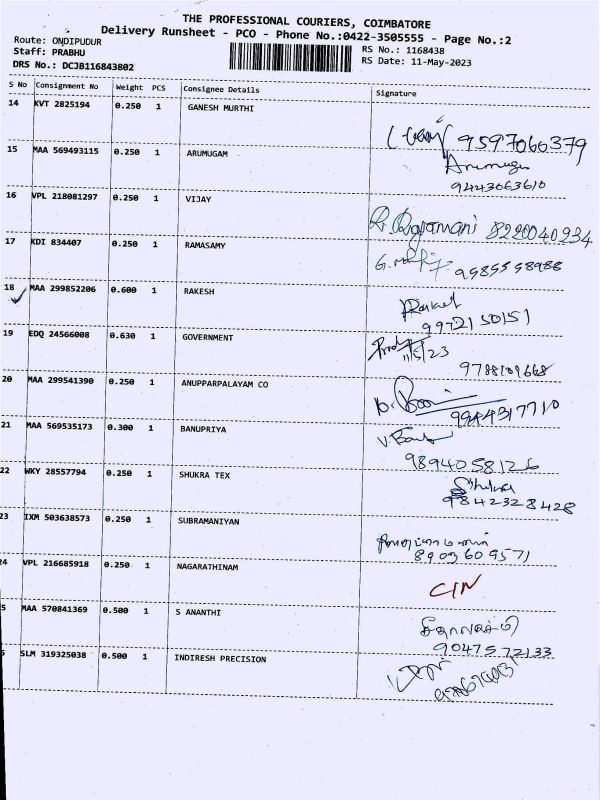 THE PROFESSIONAL COURIERS, COIMBATORE
Delivery Runsheet - PCO - Phone No.:0422-3505555 - Page No.:2
Route: ONDIPUDUR
RS No.: 1168438
Staff: PRABHU
RS Date: 11-May-2023
DRS No.: DCJB116843802
S No Consignment No Weight PCS Consignee Details Signature
14 KVT 2825194 0.250 1 GANESH MURTHI
9597060379
15 MAA 569493115 0.250 1 ARUMUGAM
Arumugam
9443063610
16 VPL 218081297 0.250 1 VIJAY
8220040234
17 KDI 834407 0.250 1 RAMASAMY
9585558988
18 MAA 299852206 0.600 1 RAKESH
Rakesh
9972150151
19 EDQ 24566008 0.630 1 GOVERNMENT
11/5/23
9788101668
20 MAA 299541390 0.250 1 ANUPPARPALAYAM CO
9944317710
21 MAA 569535173 0.300 1 BANUPRIYA
V. Banu
9894058126
22 WKY 28557794 0.250 1 SHUKRA TEX
9842328428
23 IXM 503638573 0.250 1 SUBRAMANIYAN
8903609571
24 VPL 216685918 0.250 1 NAGARATHINAM
C/N
5 MAA 570841369 0.500 1 S ANANTHI
9047572133
SLM 319325038 0.500 1 INDIRESH PRECISION